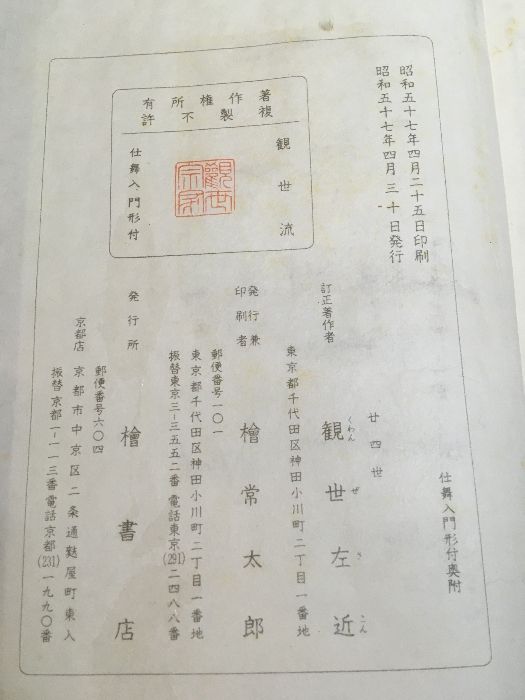 仕舞入門形付奥附
昭和五十七年四月二十五日印刷
昭和五十七年四月三十日発行
著作権所有
複製不許
観世流
觀世宗家
仕舞入門形付
訂正著作者
廿四世
観世左近
くわんぜさこん
東京都千代田区神田小川町二丁目一番地
発行兼
印刷者
檜常太郎
郵便番号一〇一
東京都千代田区神田小川町二丁目一番地
振替東京三―三五五二番 電話東京(291)二四八八番
発行所
檜書店
京都店
郵便番号六〇四
京都市中京区二条通麩屋町東入
振替京都一―一一三番 電話京都(231)一九九〇番